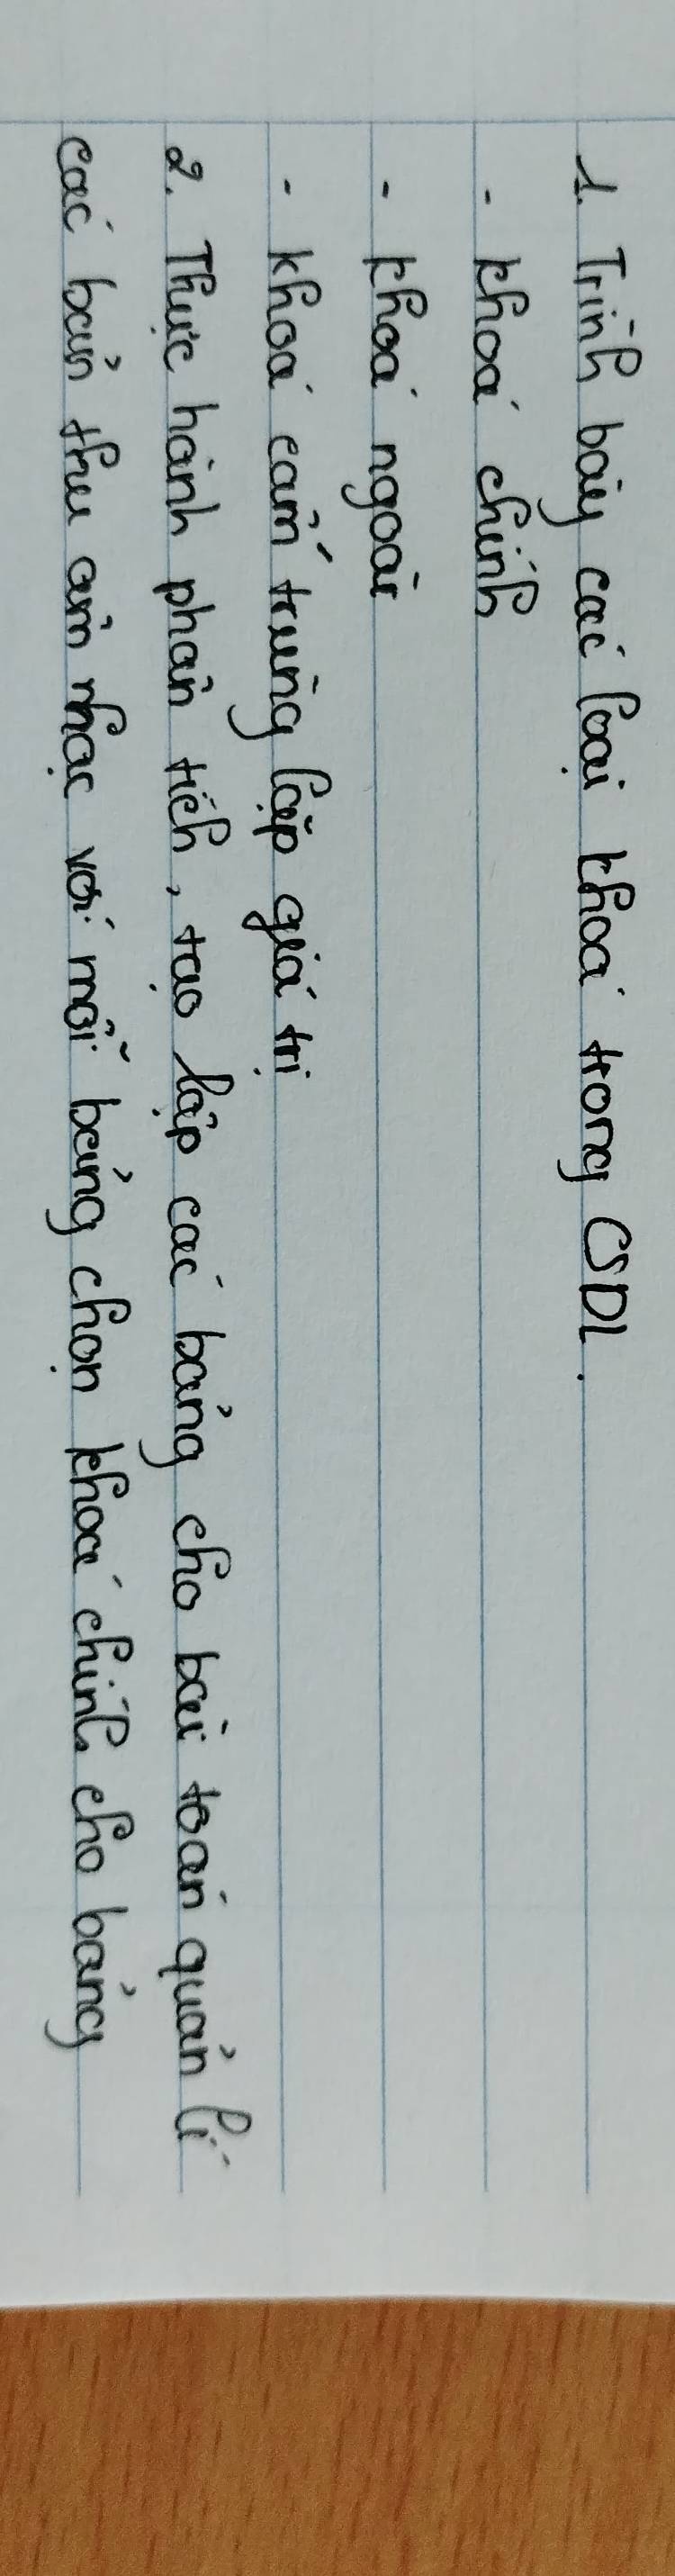 1. Trình bày các loại khoá trong CSDL.
- khoá chính
- khoá ngoài
- khoá cấm trùng lặp giá trị
2. Thực hành phân tích, tạo lập các bảng cho bài toán quản lí
các bản thu âm nhạc với mỗi bảng chọn khoá chính cho bảng